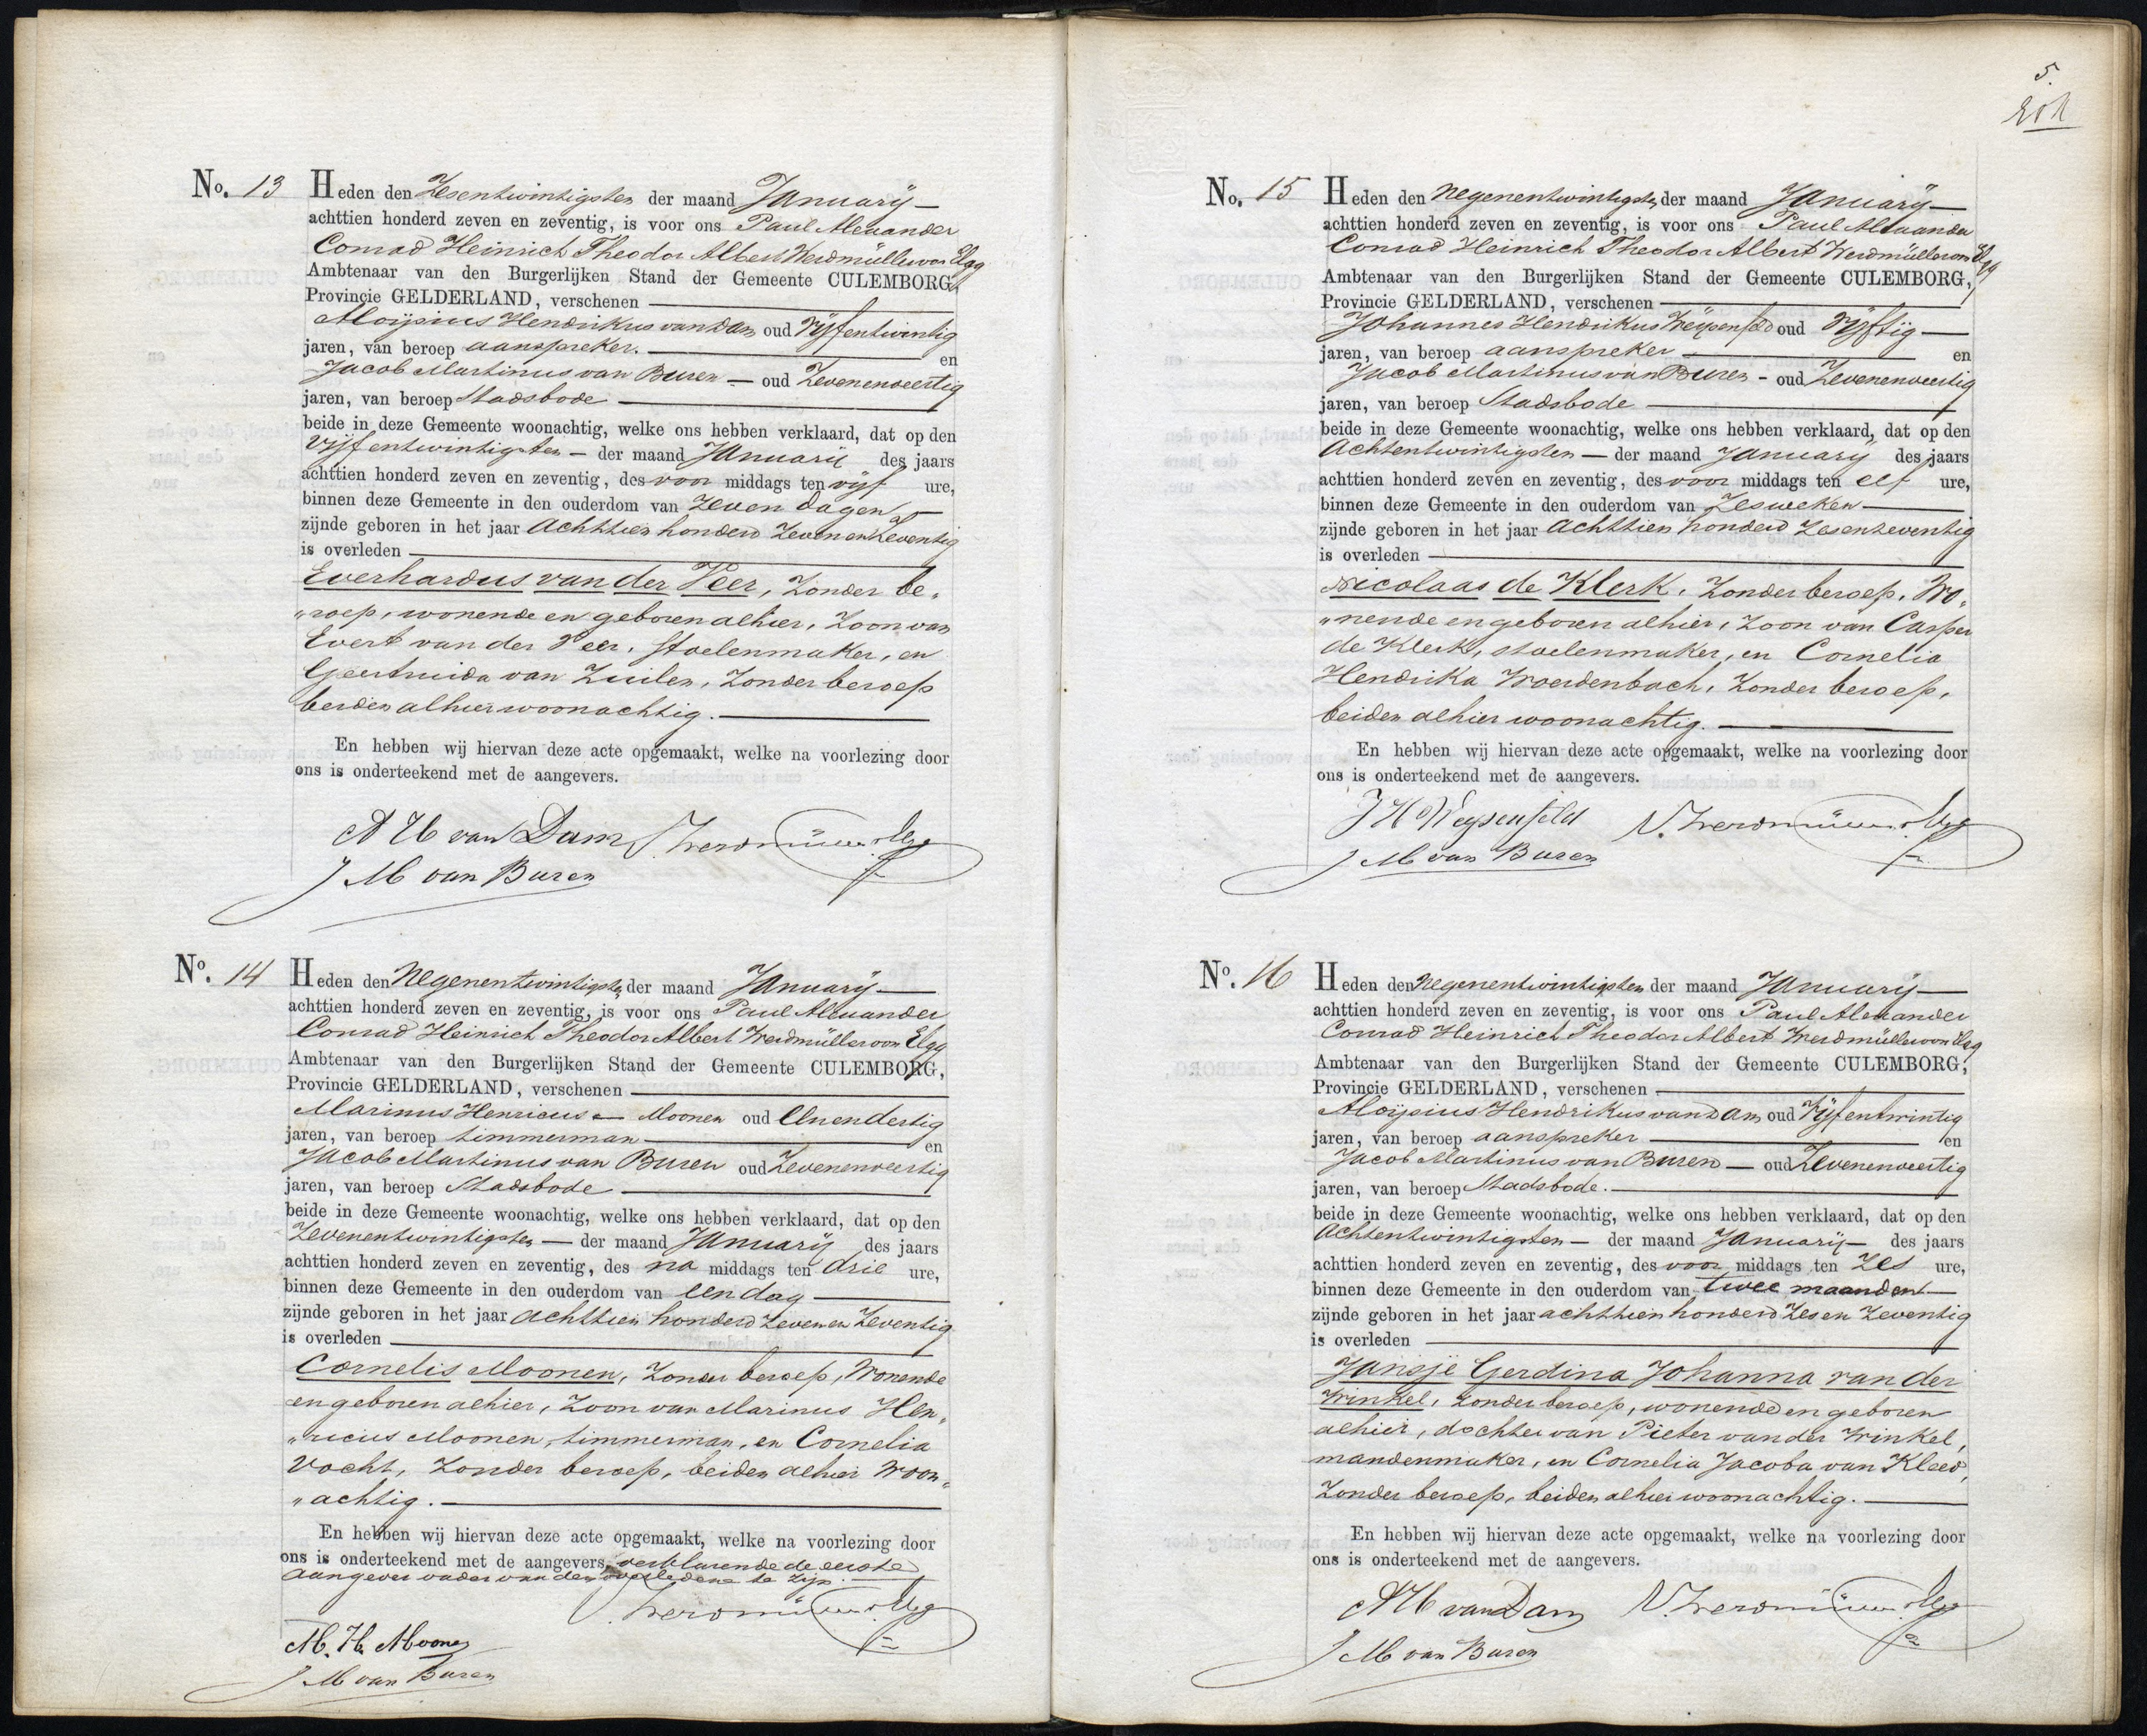 No. 13 Heden den Zesentwintigsten der maand January
achttien honderd zeven en zeventig, is voor ons Paul Alexander
Conrad Heinrich Theodor Albert Werdmüller von Elgg
Ambtenaar van den Burgerlijken Stand der Gemeente CULEMBORG,
Provincie GELDERLAND, verschenen
Aloijsius Hendrikus van Dam oud Vijfentwintig
jaren, van beroep aanspreker. en
Jacob Martinus van Buren — oud Zevenenveertig
jaren, van beroep Stadsbode
beide in deze Gemeente woonachtig, welke ons hebben verklaard, dat op den
Vijfentwintigsten — der maand January des jaars
achttien honderd zeven en zeventig, des voor middags ten vijf ure,
binnen deze Gemeente in den ouderdom van Zeven dagen
zijnde geboren in het jaar achttien honderd Zeven en Zeventig
is overleden
Everhardus van der Veer, Zonder be„
„roep, wonende en geboren alhier, Zoon van
Evert van der Veer, Stoelenmaker, en
Geertruida van Zuilen, Zonder beroep
beiden alhier woonachtig.
En hebben wij hiervan deze acte opgemaakt, welke na voorlezing door
ons is onderteekend met de aangevers.
A H van Dam Werdmüller v. Elgg
J M van Buren
No. 14 Heden den Negenentwintigsten der maand January
achttien honderd zeven en zeventig, is voor ons Paul Alexander
Conrad Heinrich Theodor Albert Werdmüller von Elgg
Ambtenaar van den Burgerlijken Stand der Gemeente CULEMBORG,
Provincie GELDERLAND, verschenen
Marinus Henricus — Moonen oud Eenendertig
jaren, van beroep timmerman en
Jacob Martinus van Buren oud Zevenenveertig
jaren, van beroep Stadsbode
beide in deze Gemeente woonachtig, welke ons hebben verklaard, dat op den
Zevenentwintigsten — der maand January des jaars
achttien honderd zeven en zeventig, des na middags ten drie ure,
binnen deze Gemeente in den ouderdom van een dag
zijnde geboren in het jaar achttien honderd Zeven en Zeventig
is overleden
Cornelis Moonen, Zonder beroep, Wonende
en geboren alhier, Zoon van Marinus Hen„
„ricus Moonen, timmerman, en Cornelia
Vocht, Zonder beroep, beiden alhier Woon„
„achtig.
En hebben wij hiervan deze acte opgemaakt, welke na voorlezing door
ons is onderteekend met de aangevers, verklarende de eerste
aangever vader van den overledene te zijn.
Werdmüller v. Elgg
M. H. Moonen
J M van Buren
5.
201
No. 15 Heden den Negenentwintigsten der maand January
achttien honderd zeven en zeventig, is voor ons Paul Alexander
Conrad Heinrich Theodor Albert Werdmüller von Elgg
Ambtenaar van den Burgerlijken Stand der Gemeente CULEMBORG,
Provincie GELDERLAND, verschenen
Johannes Hendrikus Weijsenfeld oud Vijftig
jaren, van beroep aanspreker en
Jacob Martinus van Buren - oud Zevenenveertig
jaren, van beroep Stadsbode
beide in deze Gemeente woonachtig, welke ons hebben verklaard, dat op den
Achtentwintigsten — der maand January des jaars
achttien honderd zeven en zeventig, des voor middags ten elf ure,
binnen deze Gemeente in den ouderdom van Zes weken
zijnde geboren in het jaar achttien honderd Zesenzeventig
is overleden
Nicolaas de Klerk, Zonder beroep, Wo„
„nende en geboren alhier, Zoon van Casper
de Klerk, stoelenmaker, en Cornelia
Hendrika Woerdenbach, Zonder beroep,
beiden alhier woonachtig.
En hebben wij hiervan deze acte opgemaakt, welke na voorlezing door
ons is onderteekend met de aangevers.
J H Weijsenfeld Werdmüller v. Elgg
J M van Buren
No. 16 Heden den Negenentwintigsten der maand January
achttien honderd zeven en zeventig, is voor ons Paul Alexander
Conrad Heinrich Theodor Albert Werdmüller von Elgg
Ambtenaar van den Burgerlijken Stand der Gemeente CULEMBORG,
Provincie GELDERLAND, verschenen
Aloijsius Hendrikus van Dam oud Vijfentwintig
jaren, van beroep aanspreker en
Jacob Martinus van Buren — oud Zevenenveertig
jaren, van beroep Stadsbode.
beide in deze Gemeente woonachtig, welke ons hebben verklaard, dat op den
Achtentwintigsten — der maand January — des jaars
achttien honderd zeven en zeventig, des voor middags ten Zes ure,
binnen deze Gemeente in den ouderdom van twee maanden
zijnde geboren in het jaar achttien honderd Zes en Zeventig
is overleden
Jansje Gerdina Johanna van der
Winkel, Zonder beroep, wonende en geboren
alhier, dochter van Pieter van der Winkel,
mandenmaker, en Cornelia Jacoba van Kleed,
Zonder beroep, beiden alhier woonachtig.
En hebben wij hiervan deze acte opgemaakt, welke na voorlezing door
ons is onderteekend met de aangevers.
A H van Dam Werdmüller v. Elgg
J M van Buren